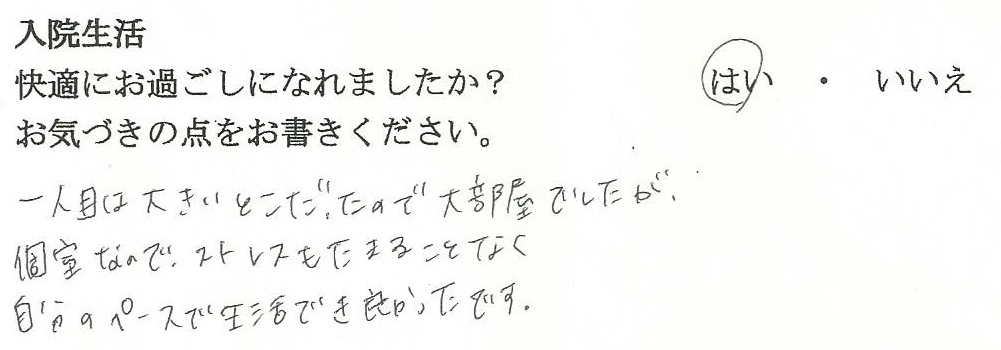 入院生活
快適にお過ごしになれましたか? はい ・ いいえ
お気づきの点をお書きください。
一人目は大きいとこだったので大部屋でしたが、
個室なので、ストレスもたまることなく
自分のペースで生活でき良かったです。